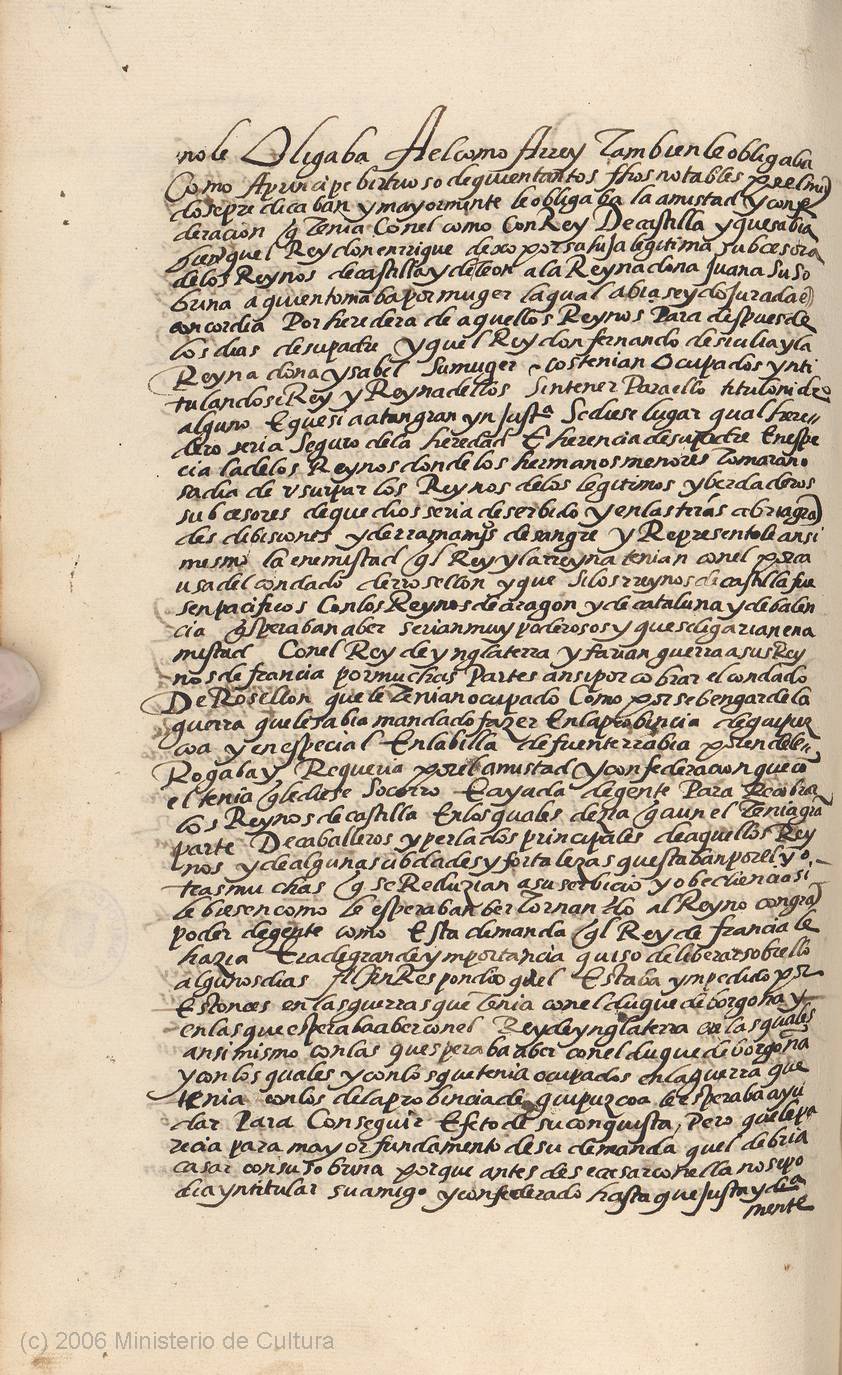 no le Obligaba A el como A rrey Tambien le obligaba
Como A principe birtuoso de quien tantos fhos notables por el mū
do se predicaban y mayormente le obligaba la amistad y confe
deracion q Tenia Con el como Con Rey De castilla y que sabia
bien quel Rey don enrrique dexo por su fija legitima subcesora
de los Reynos de castilla y de leon a la Reyna doña Juana su so
brina a quien tomaba por muger la qual abia seydo jurada e
concordia Por heredera de aquellos Reynos Para despues de
los dias de su padre y quel Rey don fernando de sicilia y la
Reyna doña ysabel su muger los tenian Ocupados ynti
tulandose Rey y Reyna dellos Sin tener Para ello titulo ni dro
alguno E que si a a tan gran ynjusta Se diese lugar qual here
dero seria Seguro de la heredad E herencia de su padre En espe
cial a de los Reynos donde los hermanos menores Tomaran o
sadia de vsurpar los Reynos de los legitimos y berdaderos
subcesores de que dios seria deserbido y en las trās abria grā
des dibisiones y derramamis de sangre y Representole ansi
mesmo la enemistad ql Rey y la rreyna tenian con el por ca
usa del condado de rrosellon y que Si los rreynos de castilla fue
sen pacificos Con los Reynos de aragon y de cataluña y de balen
cia q esperaban aber serian muy poderosos y que se ligarian en a
mistad Con el Rey de ynglaterra y farian guerra a sus Rey
nos de francia por muchas Partes ansi por cobrar el condado
De Rosellon que le Tenian ocupado Como por se bengar de la
guerra que les abia mandado fazer En la probincia de guipuz
coa y en especial En la billa de fuenterrabia por ende le
Rogaba y Requeria por el amistad y confederacion que cō
el tenia q le diese Socorro E ayuda de gente Para Recobrar
los Reynos de castilla En los quales dezia q aun el Tenia grā
parte De caballeros y perlados principales de aquellos Rey
nos y de algunas cibdades y fortalezas questaban por el y o
tras muchas q se Reduzian a su serbicio y obediencia si
le biesen como le esperaban ber Tornando al Reyno con grā
poder de gente como Esta demanda ql Rey de francia le
hazia Era de grande ymportancia quiso deliberar sobrello
algunos dias Al fin Respondio quel Estaba ympedido por
Estonces en las guerras que tenia con el duque de borgoña y
en las que esperaba aber con el Rey de ynglaterra en las quales
ansi mismo con las que speraba aber con el duque de borgoña
y con los quales y con los que tenia ocupados en la guerra que
tenia con los de la probincia de guipuzcoa le esperaba ayu
dar Para Conseguir Efeto de su conquista, Pero que le pa
recia para mayor fundamento de su demanda quel debria
casar con su sobrina porque antes de se casar con ella no se po
dia yntitular su amigo y confederado hasta que justa y dīa
mente
(c) 2006 Ministerio de Cultura